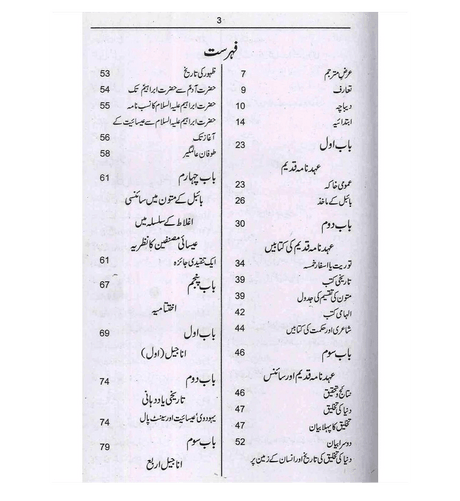 3
فہرست
عرض مترجم 7
تعارف 9
دیباچہ 10
ابتدائیہ 14
باب اول 23
عہد نامہ قدیم
عمومی خاکہ 23
بائبل کے ماخذ 26
باب دوم 30
عہد نامہ قدیم کی کتابیں
توریت یا اسفار خمسہ 34
تاریخی کتب 39
متون کی تقسیم کی جدول 39
الہامی کتب 42
شاعری اور حکمت کی کتابیں 44
باب سوم 46
عہد نامہ قدیم اور سائنس
نتائج و تحقیق 46
دنیا کی تخلیق 47
تخلیق کا پہلا بیان 47
دوسرا بیان 52
دنیا کی تخلیق کی تاریخ اور انسان کے زمین پر
ظہور کی تاریخ 53
حضرت آدمؑ سے حضرت ابراہیمؑ تک 54
حضرت ابراہیم علیہ السلام کا نسب نامہ 55
حضرت ابراہیم علیہ السلام سے عیسائیت کے
آغاز تک 56
طوفان عالمگیر 58
باب چہارم 61
بائبل کے متون میں سائنسی
اغلاط کے سلسلہ میں
عیسائی مصنفین کا نظریہ
ایک تنقیدی جائزہ 61
باب پنجم 67
اختتامیہ
باب اول 69
اناجیل (اول)
باب دوم 74
تاریخی یاد دہانی
یہودوی عیسائیت اور سینٹ پال 74
باب سوم 79
اناجیل اربع